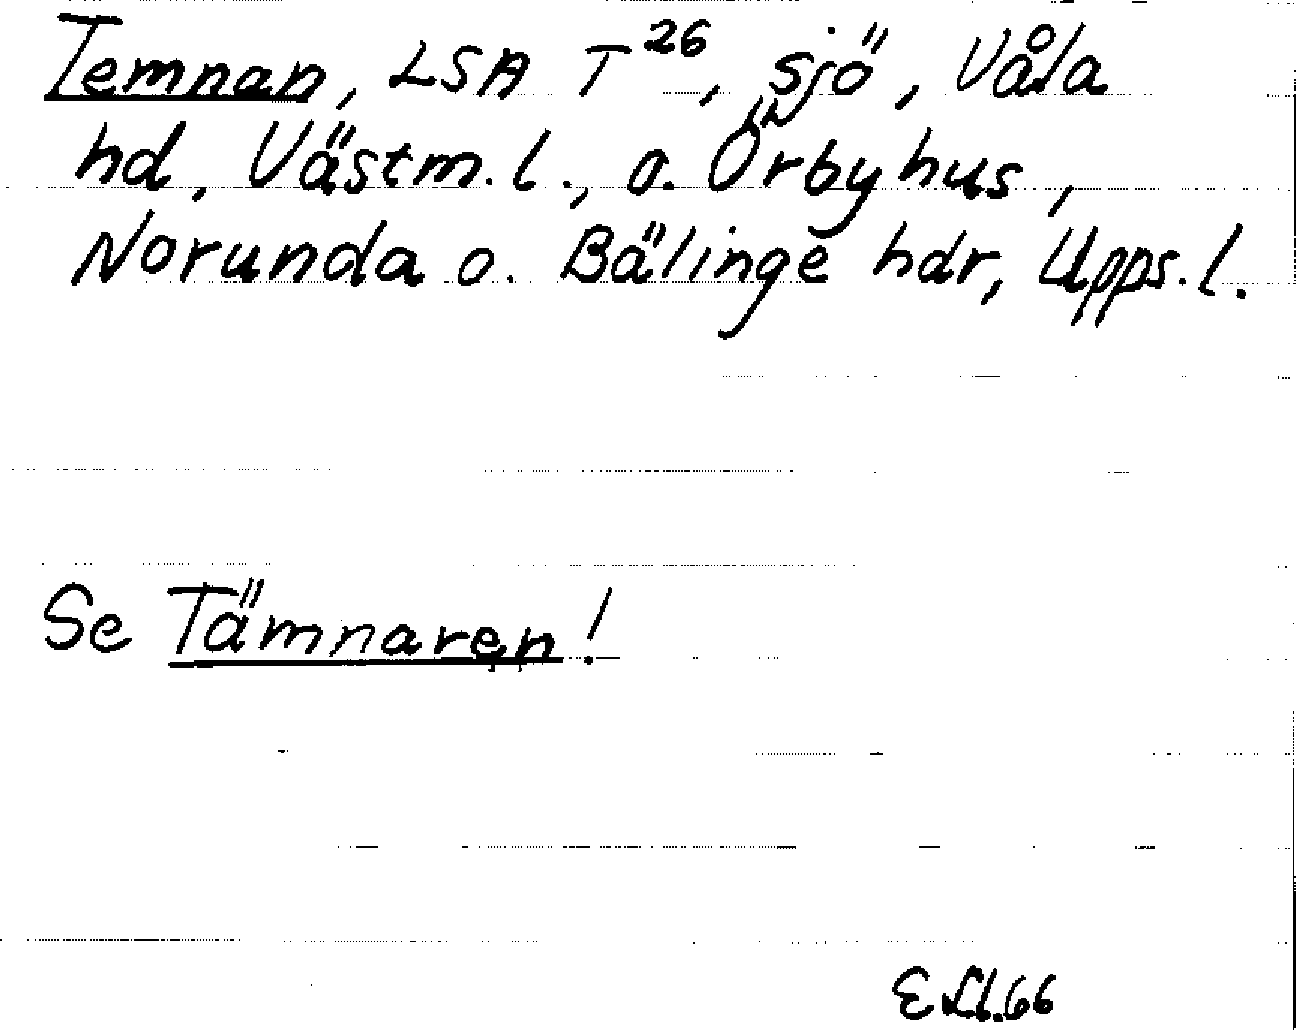 Temnan, LSA T 26, sjö, Våla
hd, Västm. l., o. Örbyhus,
Norunda o. Bälinge hdr, Upps. l.
Se Tämnaren!